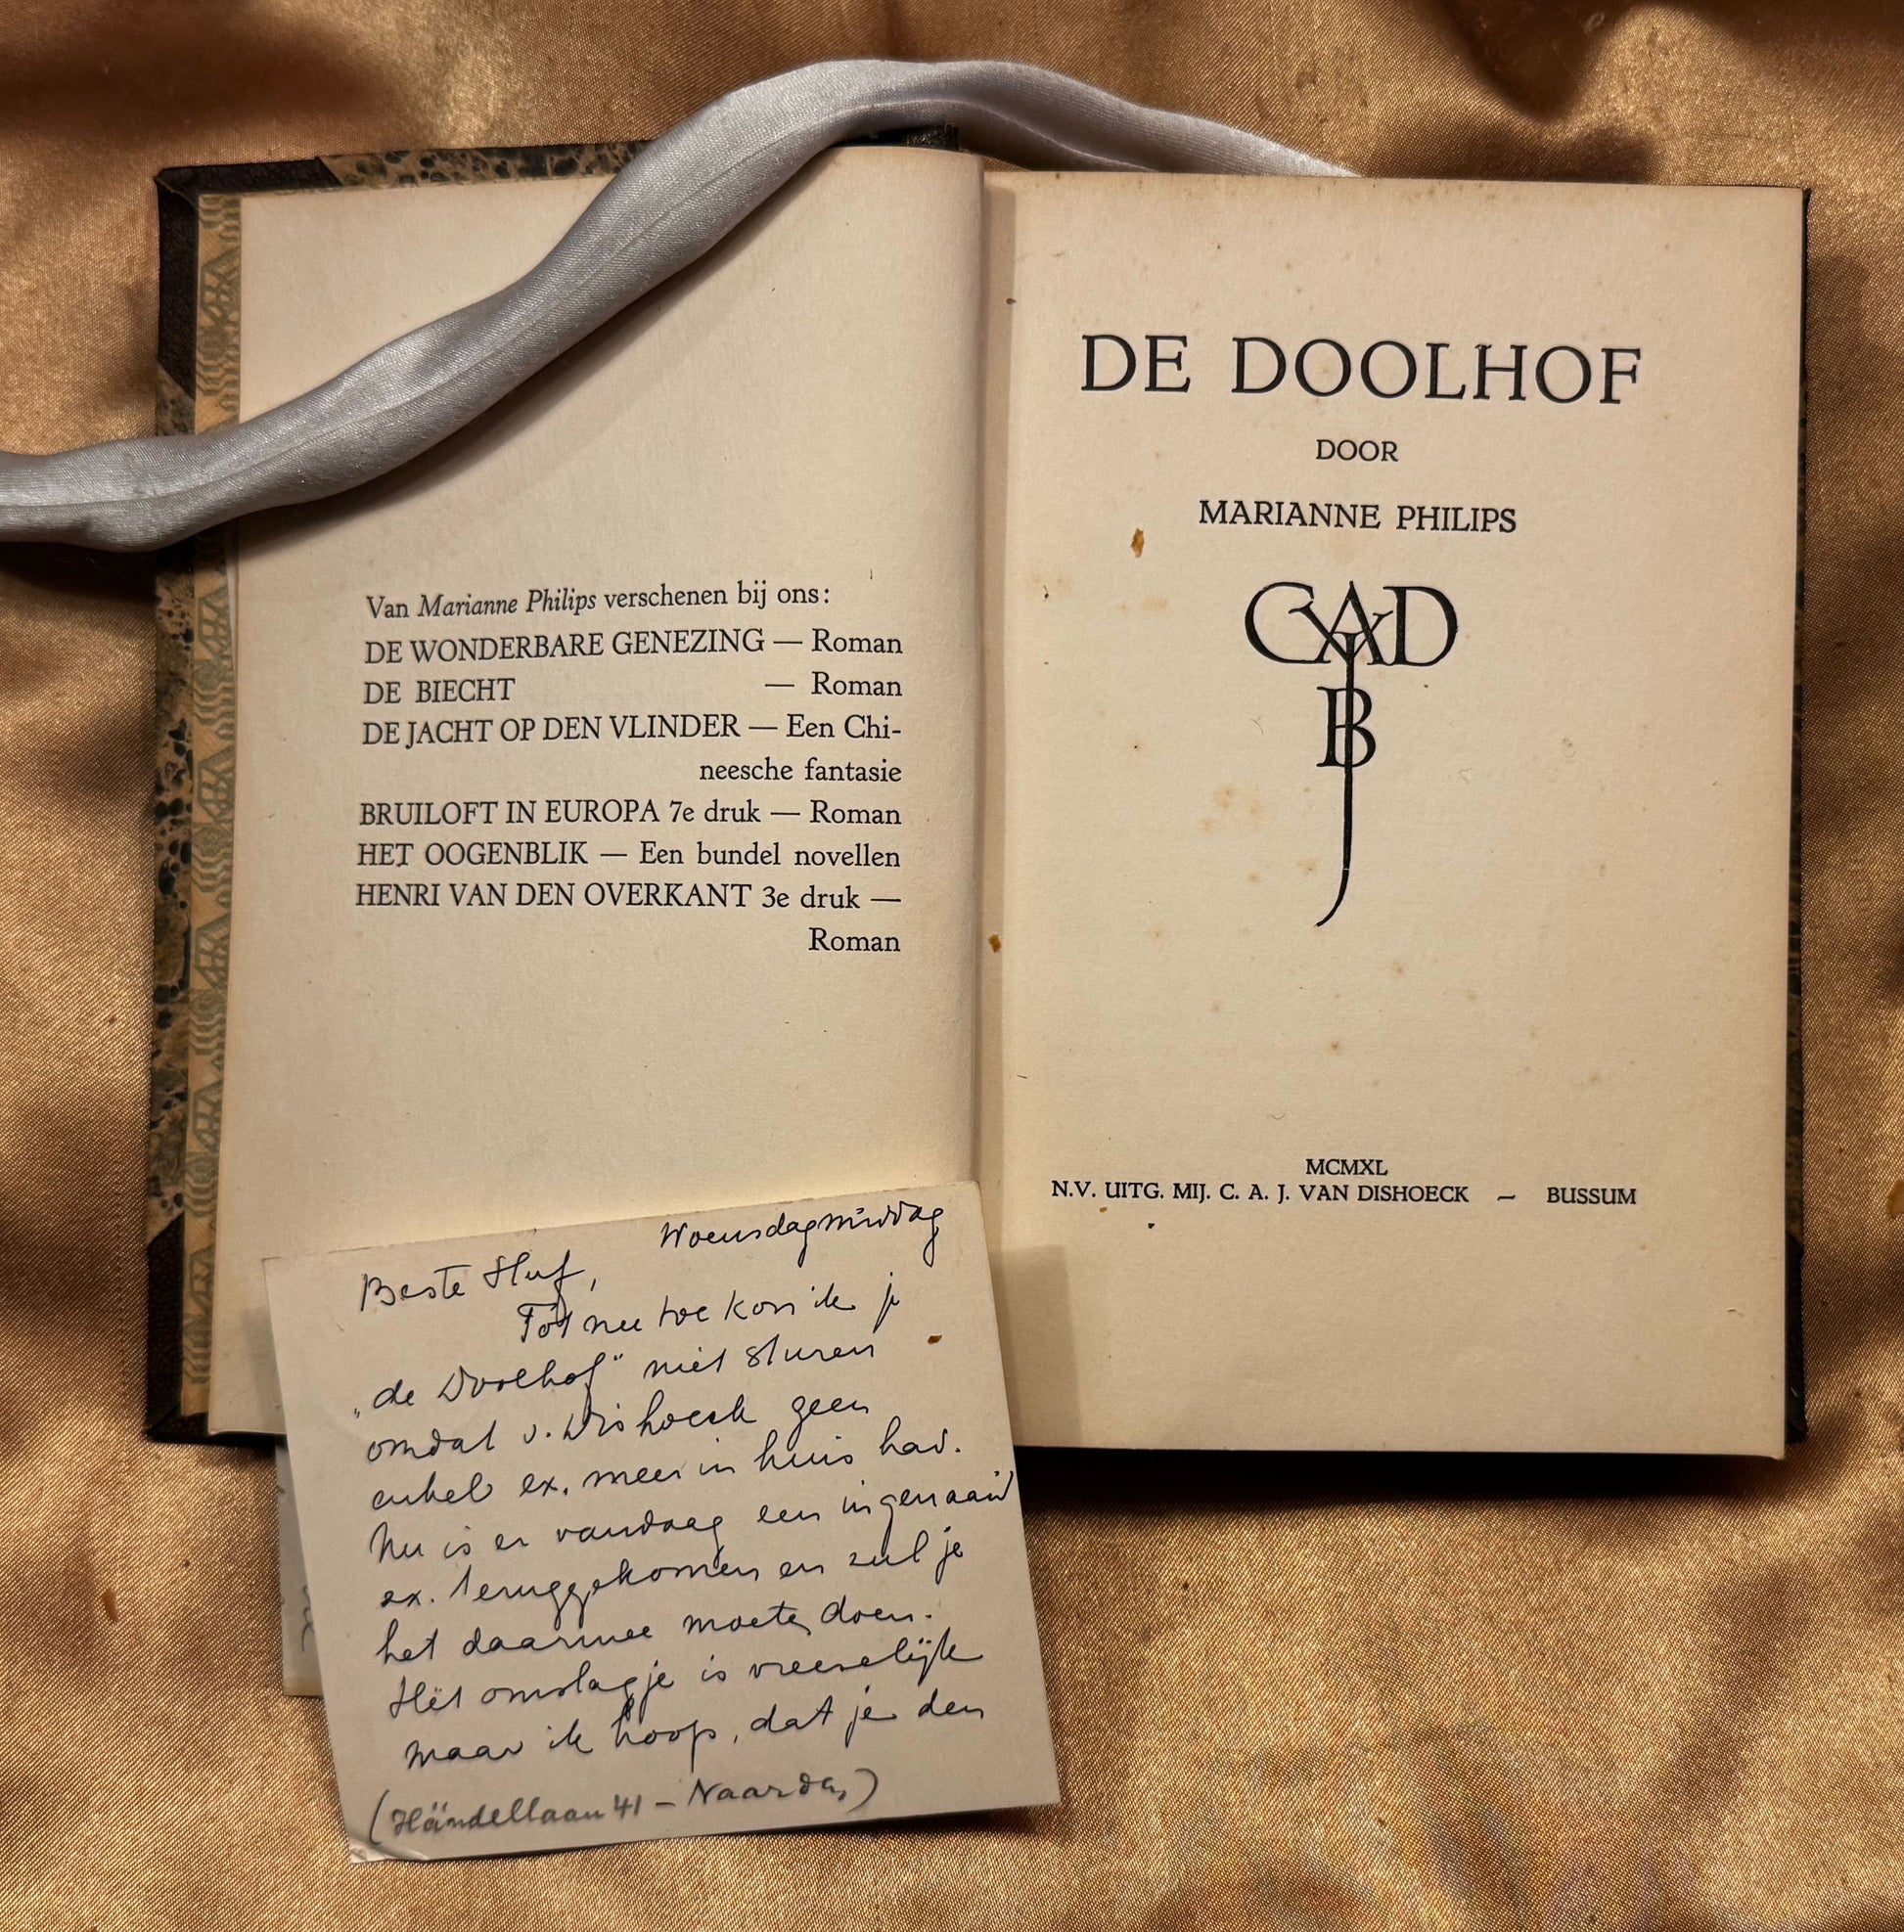 Van Marianne Philips verschenen bij ons:
DE WONDERBARE GENEZING — Roman
DE BIECHT — Roman
DE JACHT OP DEN VLINDER — Een Chi-
neesche fantasie
BRUILOFT IN EUROPA 7e druk — Roman
HET OOGENBLIK — Een bundel novellen
HENRI VAN DEN OVERKANT 3e druk —
Roman
DE DOOLHOF
DOOR
MARIANNE PHILIPS
CAD
J
B
MCMXL
N.V. UITG. MIJ. C. A. J. VAN DISHOECK — BUSSUM
Woensdagmiddag
Beste Huf,
Tot nu toe kon ik je
„de Doolhof" niet sturen
omdat v. Dishoeck geen
enkel ex. meer in huis had.
Nu is er vandaag een ingenaaid
ex. teruggekomen en zul je
het daarmee moeten doen.
Het omslagje is vreeselijk
maar ik hoop, dat je den
(Händellaan 41 – Naarden)